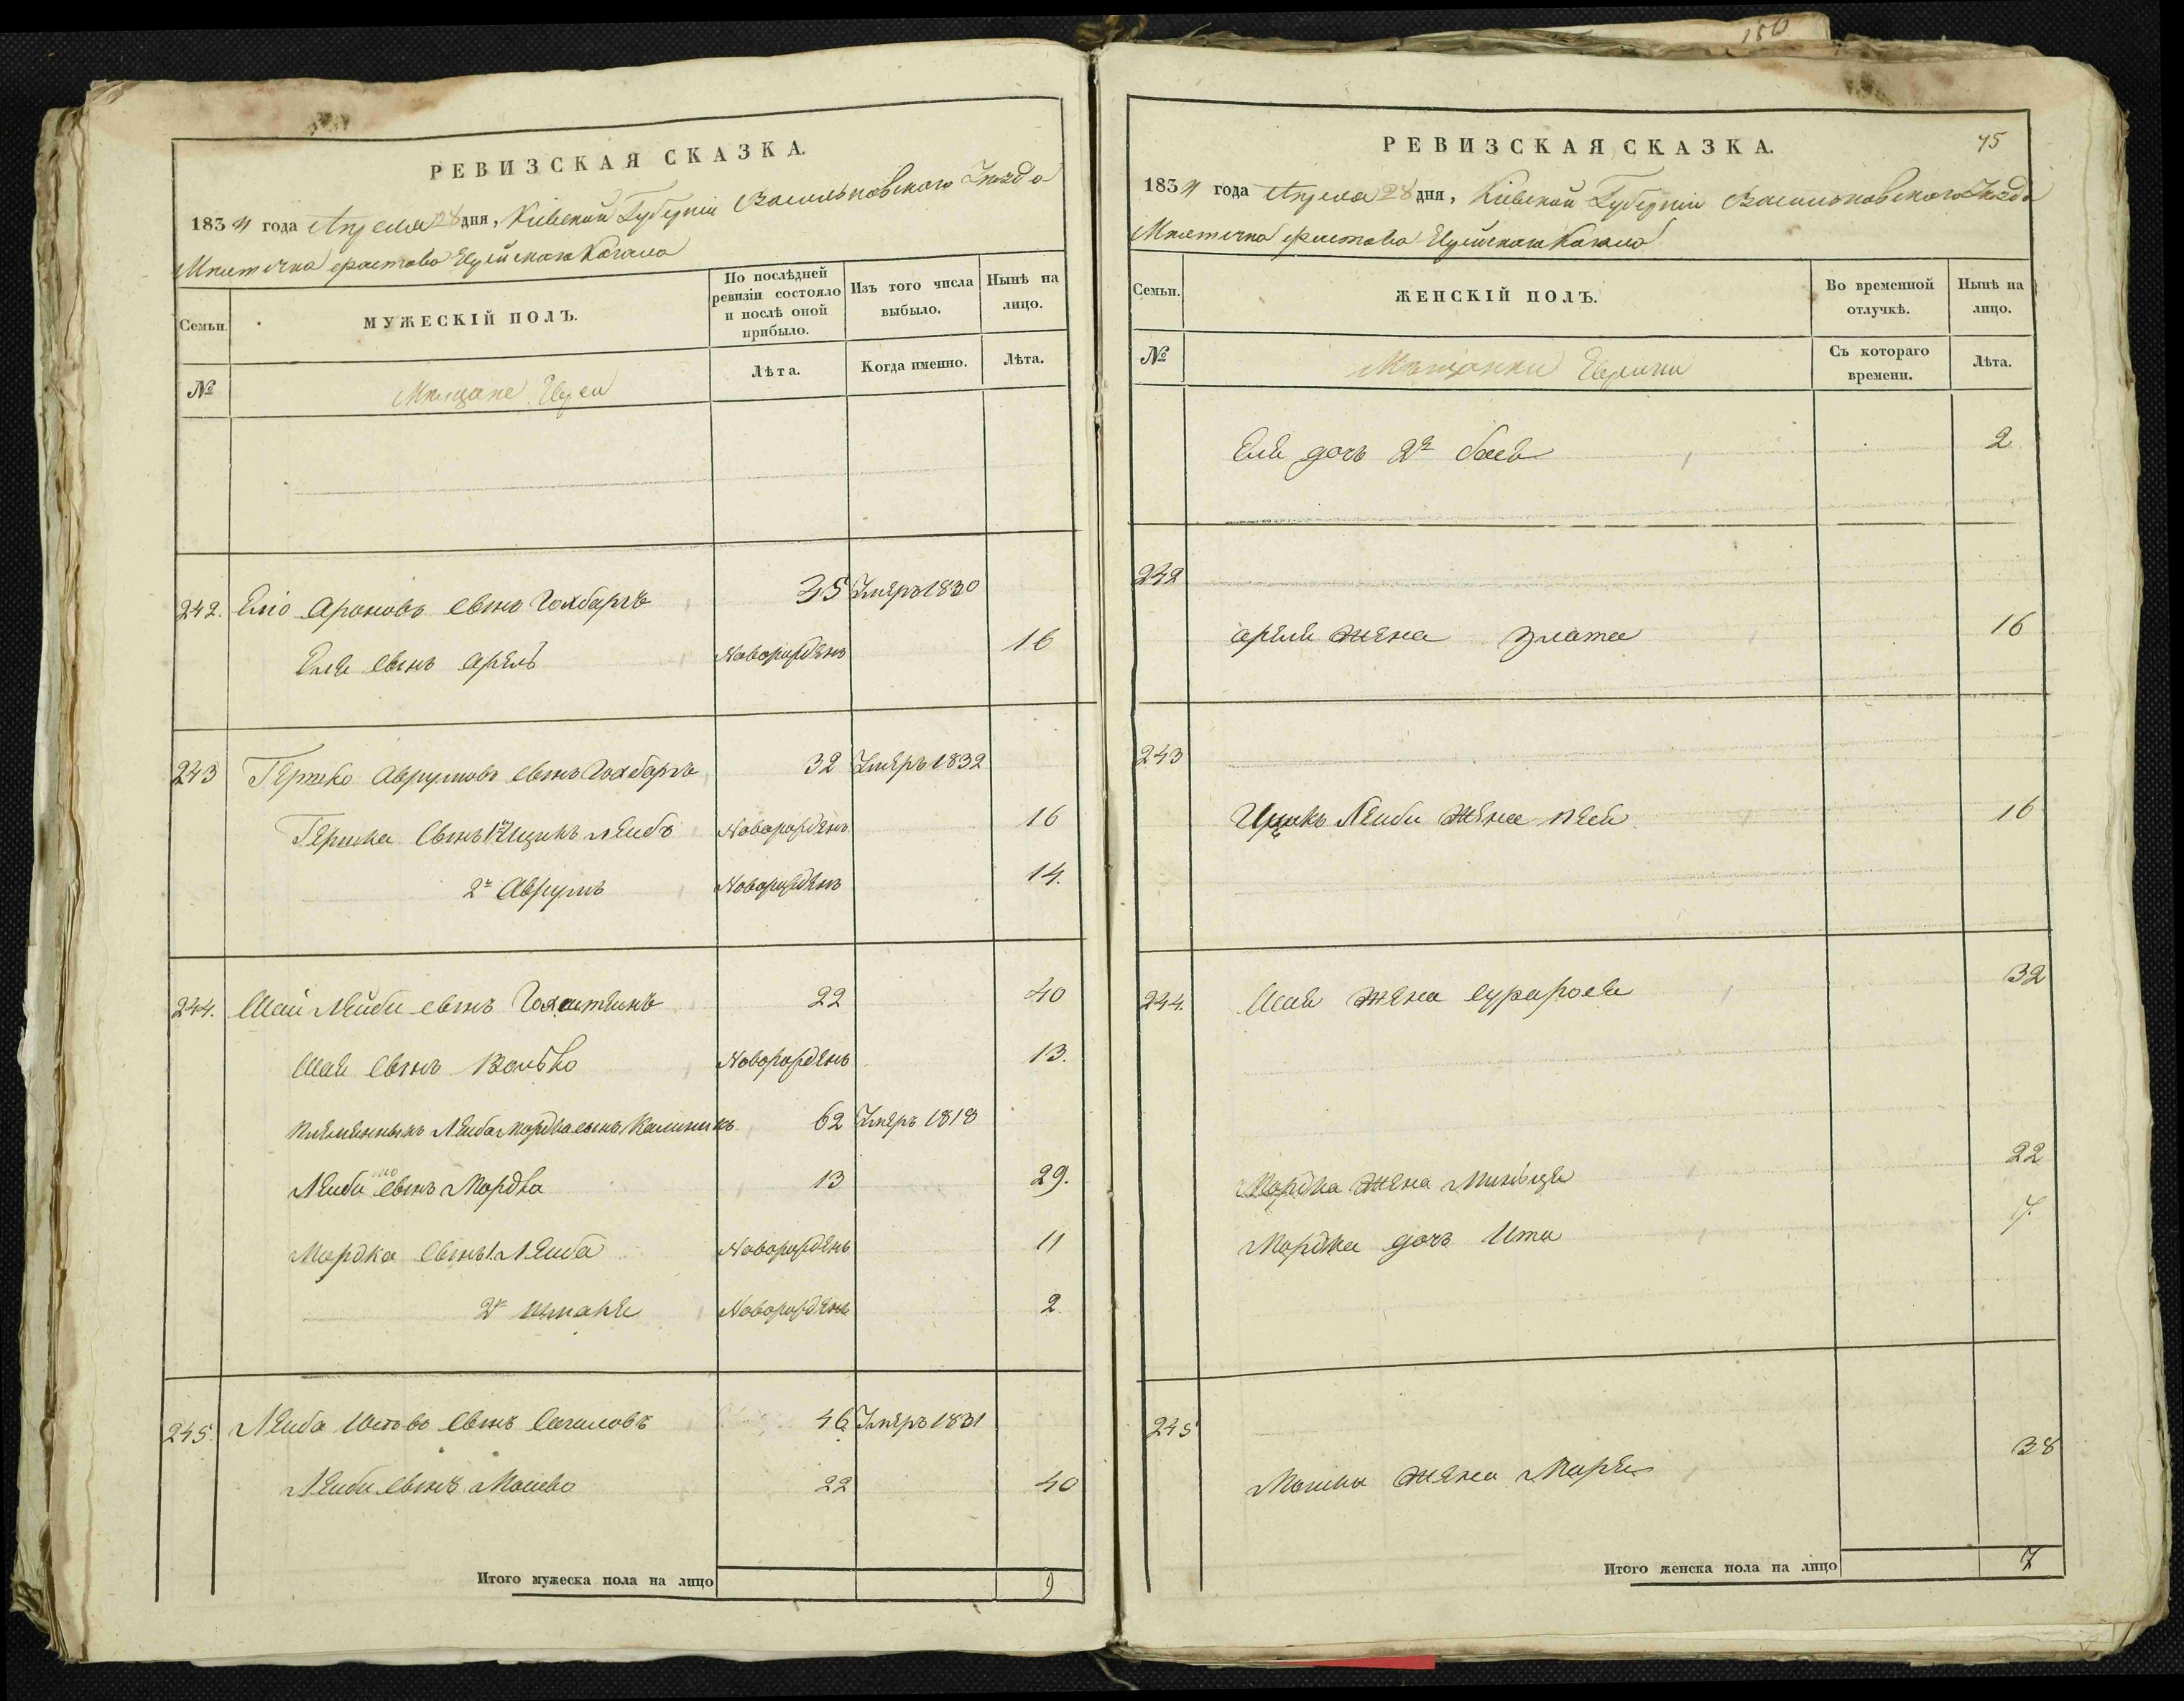 150
РЕВИЗСКАЯ СКАЗКА.
1834 года Апреля 28 дня, Кіевской Губерніи Васильковского Уезда
Местечка Фастова Еврейского Кагала
Семьи.
МУЖЕСКІЙ ПОЛЪ.
По послѣдней ревизіи состояло и послѣ оной прибыло.
Изъ того числа выбыло.
Нынѣ на лицо.
№
Мещане Евреи
Лѣта.
Когда именно.
Лѣта.
242. Еліо Ароновъ сынъ Голбаргъ 35 Умеръ 1830
Еліи сынъ Арель Новорожденъ 16
243 Гершко Аврумовъ сынъ Голбаргъ 32 Умеръ 1832
Гершка сынъ 1й Ицикъ Лейбъ Новорожденъ 16
2й Аврумъ Новорожденъ 14.
244. Шаи Лейби сынъ 22 40
Шаи сынъ Волько Новорожденъ 13.
племянныкъ Лейба Мордка сынъ 62 Умеръ 1818
Лейби сынъ Мордко 13 29.
Мордка сынъ 1. Лейба Новорожденъ 11
2й Новорожденъ 2
245. Лейба сынъ 46 Умеръ 1831
Лейби сынъ Мошко 22 40
Итого мужеска пола на лицо 9
РЕВИЗСКАЯ СКАЗКА. 75
1834 года Апреля 28 дня, Кіевской Губерніи Васильковского Уезда
Местечка Фастова Еврейского Кагала
Семьи.
ЖЕНСКІЙ ПОЛЪ.
Во временной отлучкѣ.
Нынѣ на лицо.
№
Мещанки Еврейки
Съ котораго времени.
Лѣта.
Еліи дочь 2я Бася 2
242
Арели жена Злата 16
243
Ицикъ Лейби жена 16
244. Шаи жена Сурарося 32
Мордка жена Миньця 22
Мордка дочь Ита 7.
245
Мошка жена Маря 38
Итого женска пола на лицо 7